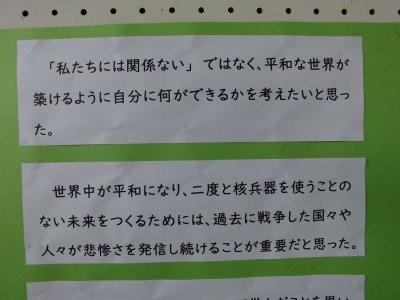 「私たちには関係ない」ではなく、平和な世界が
築けるように自分に何ができるかを考えたいと思っ
た。
世界中が平和になり、二度と核兵器を使うことの
ない未来をつくるためには、過去に戦争した国々や
人々が悲惨さを発信し続けることが重要だと思った。